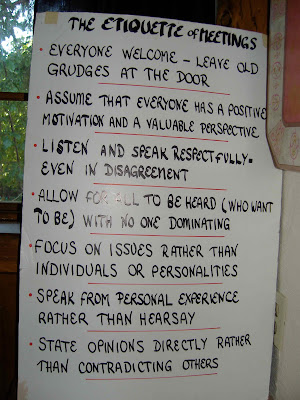 THE ETIQUETTE of MEETINGS
• EVERYONE WELCOME - LEAVE OLD
GRUDGES AT THE DOOR
• ASSUME THAT EVERYONE HAS A POSITIVE
MOTIVATION AND A VALUABLE PERSPECTIVE
• LISTEN AND SPEAK RESPECTFULLY-
EVEN IN DISAGREEMENT
• ALLOW FOR ALL TO BE HEARD (WHO WANT
TO BE) WITH NO ONE DOMINATING
• FOCUS ON ISSUES RATHER THAN
INDIVIDUALS OR PERSONALITIES
• SPEAK FROM PERSONAL EXPERIENCE
RATHER THAN HEARSAY
• STATE OPINIONS DIRECTLY RATHER
THAN CONTRADICTING OTHERS